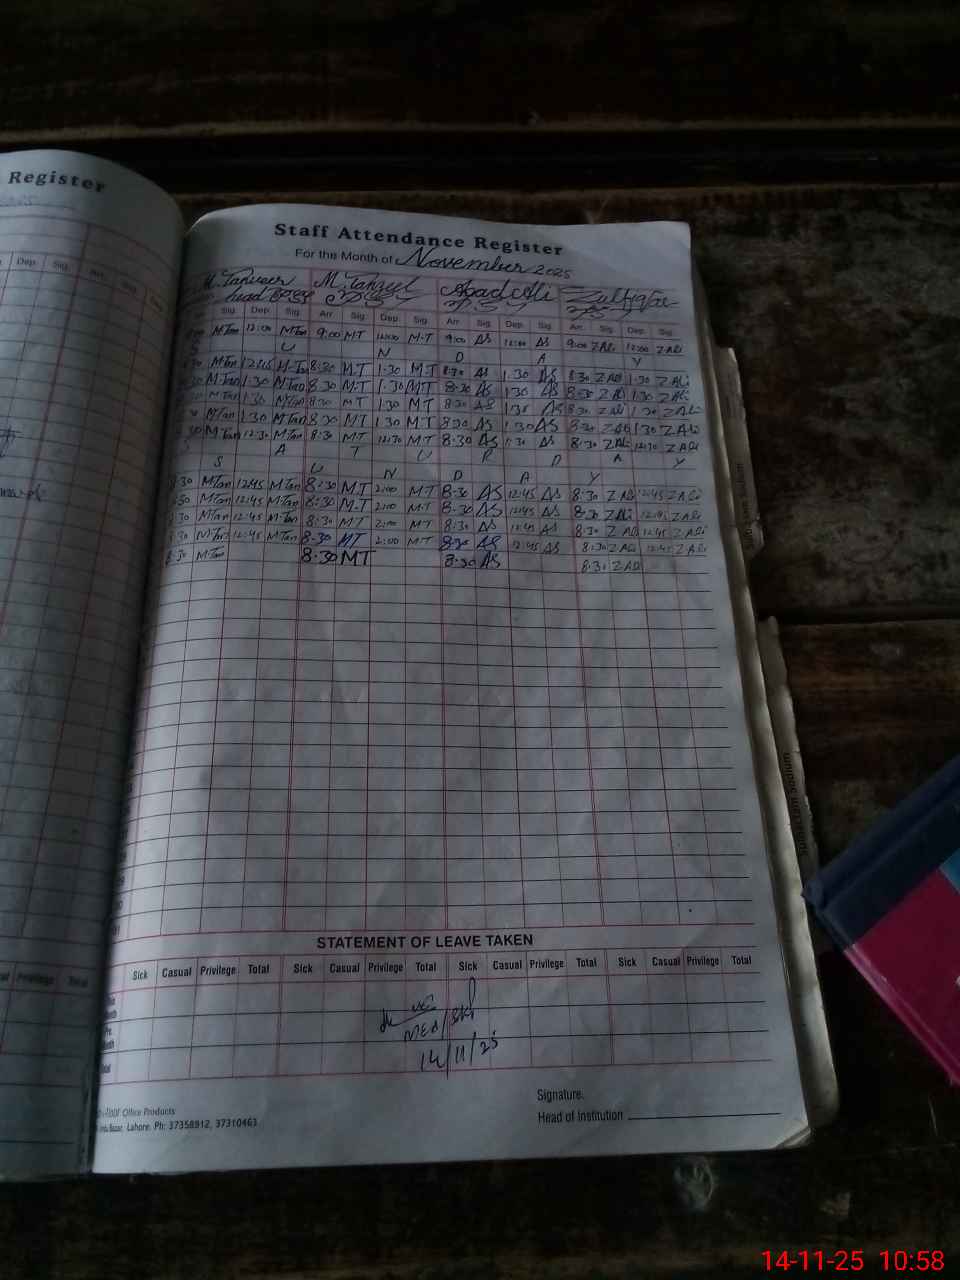 Register
Staff Attendance Register
For the Month of November 2025
M. Tanveer M. Tanzeel Asad Ali Zulfiqar
head
Dep. Sig. Arr. Dep.
Sig. Dep. Sig. Arr. Sig. Dep. Sig. Arr. Sig. Dep. Sig. Arr. Sig. Dep. Sig.
MTan 12:00 MTan 9:00 MT 12:00 M.T 9:00 AS 12:00 AS 9:00 Z ALi 12:00 Z ALi
S U N D A Y
MTan 12:45 M.Tan 8:30 M.T 1:30 M.T 8:30 AS 1:30 AS 8:30 Z ALi 1:30 Z ALi
M.Tan 1:30 MTan 8:30 M.T 1:30 MT 8:30 AS 1:30 AS 8:30 Z ALi 1:30 Z ALi
MTan 1:30 MTan 8:30 MT 1:30 MT 8:30 AS 1:30 AS 8:30 Z ALi 1:30 Z ALi
MTan 1:30 MTan 8:30 MT 1:30 MT 8:30 AS 1:30 AS 8:30 Z ALi 1:30 Z ALi
MTan 12:30 MTan 8:30 MT 12:30 MT 8:30 AS AS 8:30 Z ALi 12:30 Z ALi
S A T U R D A Y
S U N D A Y
8:30 MTan 12:45 MTan 8:30 MT 2:00 MT 8:30 AS 12:45 AS 8:30 Z ALi 12:45 Z ALi
8:30 MTan 12:45 MTan 8:30 M.T 2:00 MT 8:30 AS 12:45 AS 8:30 Z ALi 12:45 Z ALi
8:30 MTan 12:45 MTan 8:30 MT 2:00 MT 8:30 AS 12:45 AS 8:30 Z ALi 12:45 Z ALi
8:30 M.Tan 12:45 MTan 8:30 MT 2:00 M.T 8:30 AS 12:45 AS 8:30 Z ALi 12:45 Z ALi
8:30 MTan 8:30 MT 8:30 AS 8:30 Z ALi
STATEMENT OF LEAVE TAKEN
Privilege Total
Sick Casual Privilege Total Sick Casual Privilege Total Sick Casual Privilege Total Sick Casual Privilege Total
14/11/25
Office Products
Lahore. Ph: 37358912, 37310463
Signature.
Head of Institution
14-11-25 10:58